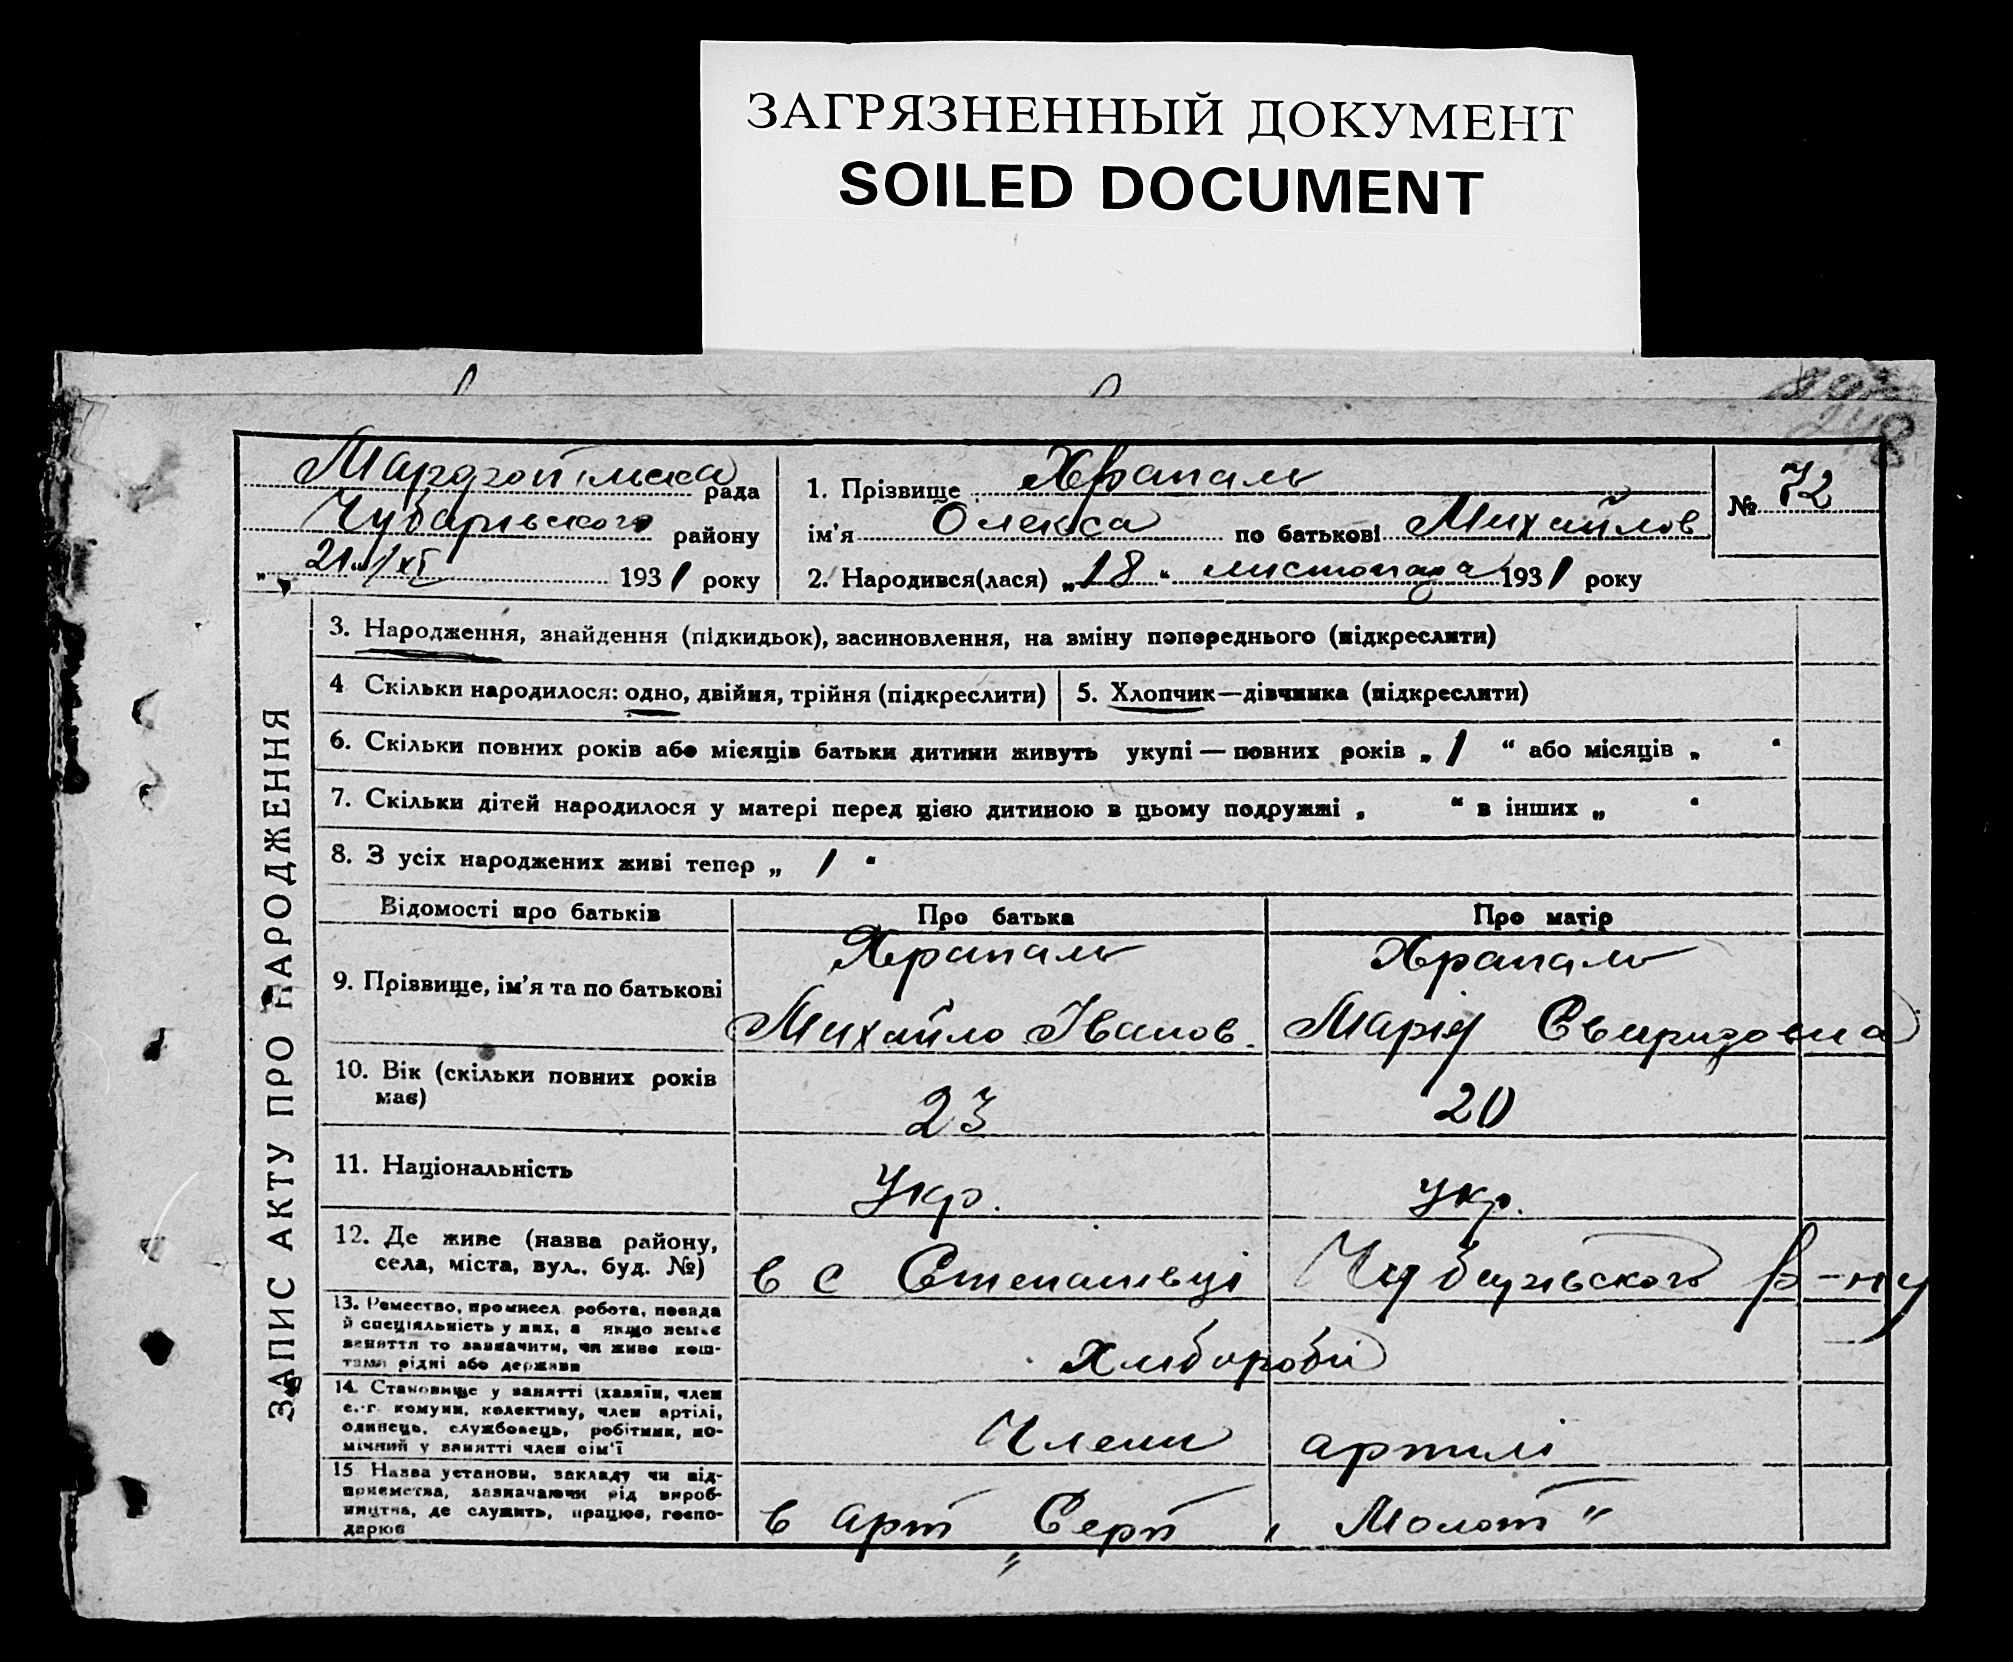 ЗАГРЯЗНЕННЫЙ ДОКУМЕНТ
SOILED DOCUMENT
248
рада
Чубарівського району
„ 21 “ /XI 1931 року
1. Прізвище Храпаль
ім'я Олекса по батькові Михайлов
2. Народився(лася) „ 18 “ листопада 1931 року
№ 72
ЗАПИС АКТУ ПРО НАРОДЖЕННЯ
3. Народження, знайдення (підкидьок), засиновлення, на зміну попереднього (підкреслити)
4 Скільки народилося: одно, двійня, трійня (підкреслити)
5. Хлопчик—дівчинка (підкреслити)
6. Скільки повних років або місяців батьки дитини живуть укупі — повних років „ 1 “ або місяців „ “
7. Скільки дітей народилося у матері перед цією дитиною в цьому подружжі „ “ в інших „ “
8. З усіх народжених живі тепер „ 1 “
Відомості про батьків
Про батька
Про матір
9. Прізвище, ім'я та по батькові
Храпаль
Михайло Іванов.
Храпаль
Марія Свиридовна
10. Вік (скільки повних років
має)
23
20
11. Національність
Укр.
укр.
12. Де живе (назва району,
села, міста, вул., буд. №)
в с Степанівці Чубарівського р-ну
13. Ремество, промисел робота, посада
й спеціяльність у них, а якщо немає
заняття то зазначити, чи живе кош-
тами рідні або держави
Хлібороби
14. Становище у занятті (хазяїн, член
с.-г. комуни, колективу, член артілі,
одинець, службовець, робітник, по-
мічний у занятті член сім'ї
Члени артилі
15 Назва установи, закладу чи під-
приємства, зазначаючи рід вироб-
ництва, де служить, працює, госпо-
дарює
в арт „Серп і Молот"